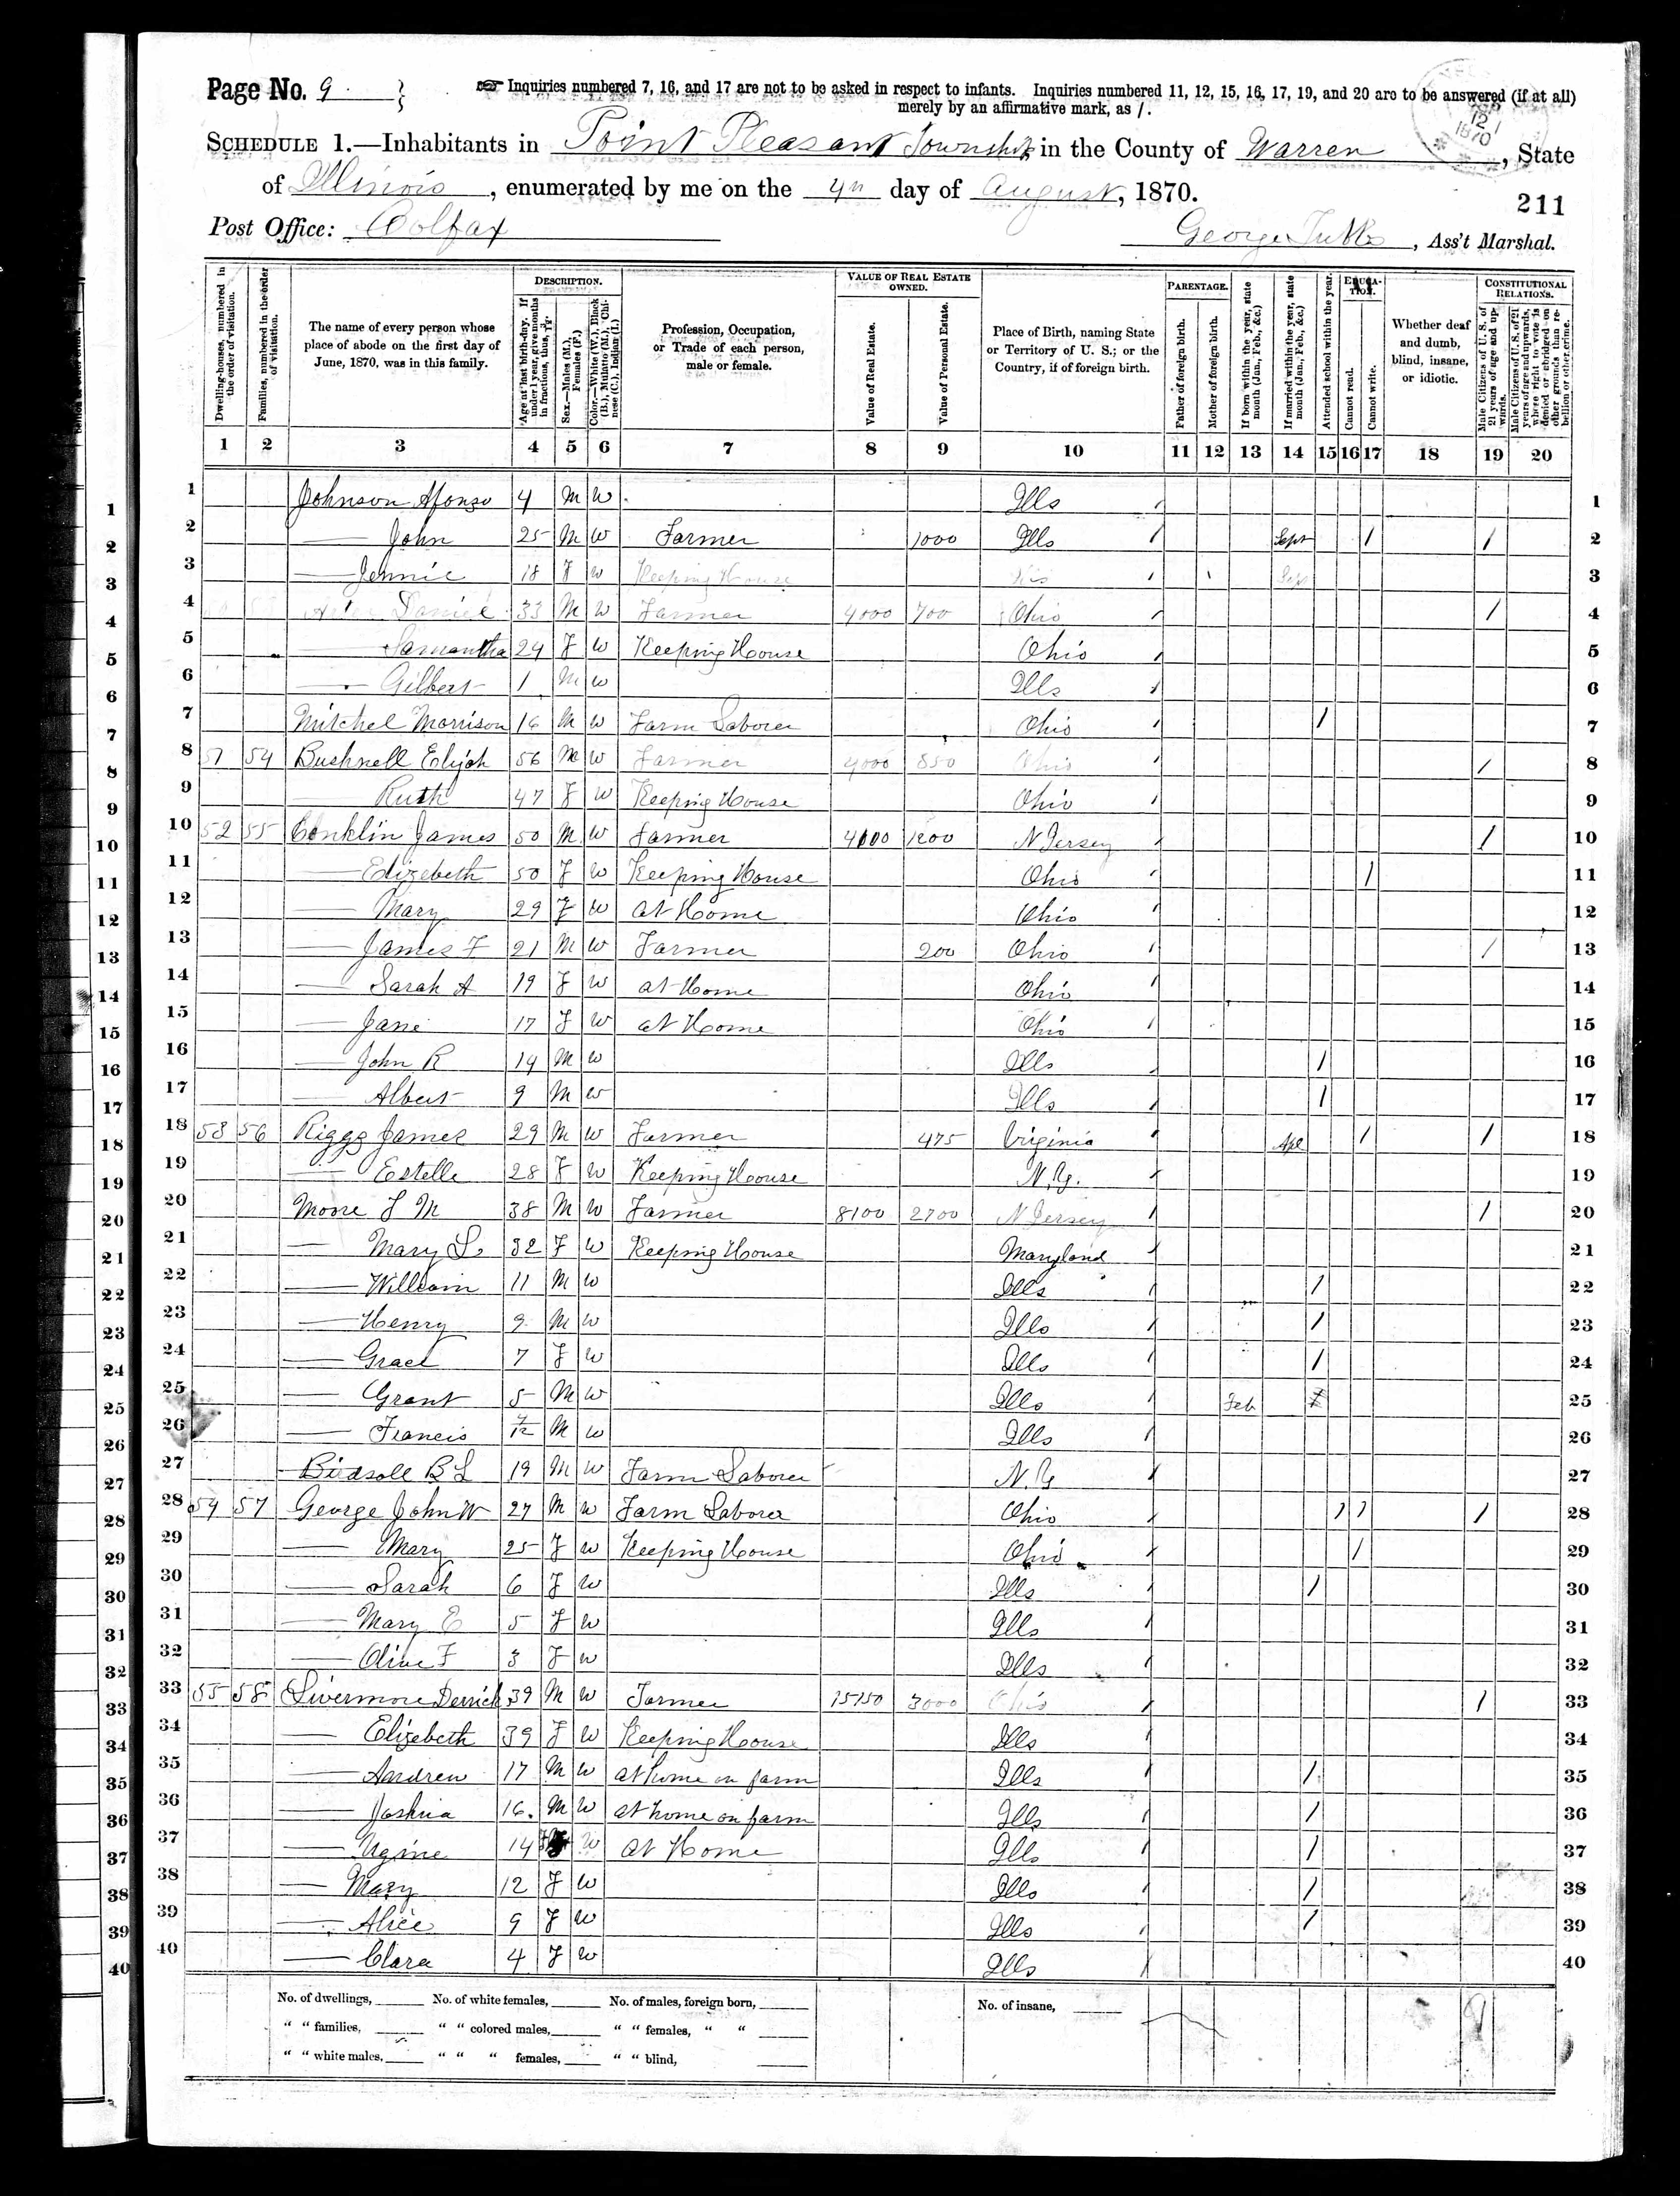 Page No. 9
Inquiries numbered 7, 16, and 17 are not to be asked in respect to infants. Inquiries numbered 11, 12, 15, 16, 17, 19, and 20 are to be answered (if at all)
merely by an affirmative mark, as /.
SCHEDULE 1.—Inhabitants in Point Pleasant Township in the County of Warren, State
of Illinois, enumerated by me on the 4th day of August, 1870.
211
Post Office: Colfax
George, Ass't Marshal.
Dwelling-houses, numbered in the order of visitation.
Families, numbered in the order of visitation.
The name of every person whose place of abode on the first day of June, 1870, was in this family.
DESCRIPTION.
Age at last birth-day. If under 1 year, give months in fractions, thus, 3/12.
Sex.—Males (M.), Females (F.)
Color.—White (W.), Black (B.), Mulatto (M.), Chinese (C.), Indian (I.)
Profession, Occupation, or Trade of each person, male or female.
VALUE OF REAL ESTATE OWNED.
Value of Real Estate.
Value of Personal Estate.
Place of Birth, naming State or Territory of U. S.; or the Country, if of foreign birth.
PARENTAGE.
Father of foreign birth.
Mother of foreign birth.
If born within the year, state month (Jan., Feb., &c.)
If married within the year, state month (Jan., Feb., &c.)
Attended school within the year.
EDUCATION.
Cannot read.
Cannot write.
Whether deaf and dumb, blind, insane, or idiotic.
CONSTITUTIONAL RELATIONS.
Male Citizens of U. S. of 21 years of age and upwards.
Male Citizens of U. S. of 21 years of age and upwards, where right to vote is denied or abridged on other grounds than rebellion or other crime.
1 2 3 4 5 6 7 8 9 10 11 12 13 14 15 16 17 18 19 20
1 Johnson Alonzo 4 M W Ills 1
2 — John 25 M W Farmer 1000 Ills Sept / / 2
3 — Jennie 18 F W Keeping House / Sep 3
4 Daniel 33 M W Farmer 4000 700 Ohio / 4
5 — Samantha 24 F W Keeping House Ohio 5
6 — Gilbert 1 M W Ills 6
7 Mitchel Morrison 16 M W Farm Laborer Ohio / 7
8 51 54 Bushnell Elijah 56 M W Farmer 4000 850 Ohio / 8
9 — Ruth 47 F W Keeping House Ohio 9
10 52 55 Conklin James 50 M W Farmer 4100 1200 N Jersey / 10
11 — Elizebeth 50 F W Keeping House Ohio / 11
12 — Mary 29 F W At Home Ohio 12
13 — James F 21 M W Farmer 200 Ohio / 13
14 — Sarah A 19 F W at Home Ohio 14
15 — Jane 17 F W at Home Ohio 15
16 — John R 14 M W Ills / 16
17 — Albert 9 M W Ills / 17
18 53 56 Riggs James 29 M W Farmer 475 Virginia Apl / / 18
19 — Estelle 28 F W Keeping House N.Y. 19
20 Moore J M 38 M W Farmer 8100 2700 N Jersey / 20
21 — Mary L. 32 F W Keeping House Maryland 21
22 — William 11 M W Ills / 22
23 — Henry 9 M W Ills / 23
24 — Grace 7 F W Ills / 24
25 — Grant 5 M W Ills Feb 25
26 — Francis M W Ills 26
27 Birdsall B L 19 M W Farm Laborer N.Y 27
28 54 57 George John W 27 M W Farm Laborer Ohio / / / 28
29 — Mary 25 F W Keeping House Ohio / 29
30 — Sarah 6 F W Ills / 30
31 — Mary E 5 F W Ills 31
32 — Olive F 3 F W Ills 32
33 55 58 Livermore Derrick 39 M W Farmer 15150 3000 Ohio / 33
34 — Elizebeth 39 F W Keeping House Ills 34
35 — Andrew 17 M W at home on farm Ills / 35
36 — Joshua 16 M W at home on farm Ills / 36
37 — Ugine 14 F W At Home Ills / 37
38 — Mary 12 F W Ills / 38
39 — Alice 9 F W Ills / 39
40 — Clara 4 F W Ills 40
No. of dwellings, No. of white females, No. of males, foreign born, No. of insane,
" " families, " " colored males, " " females, " "
" " white males, " " " females, " " blind,